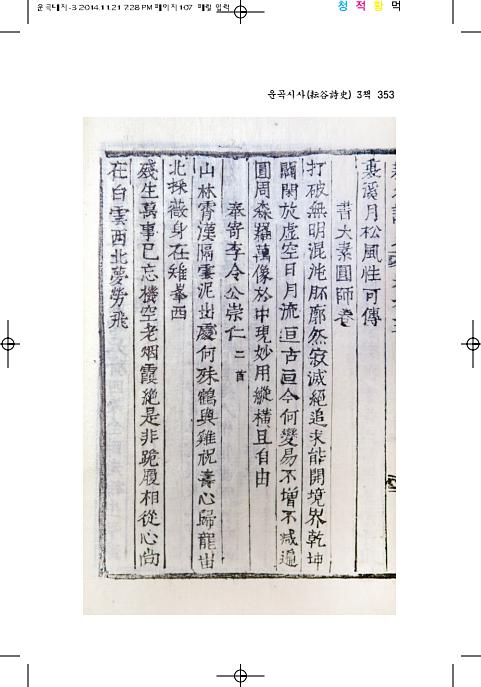 운곡대지-3 2014.11.21 7:28 PM 페이지107 매킬 입력
청 적 황 먹
운곡시사(耘谷詩史) 3책 353
裘溪月松風性可傳
書大素圓師卷
打破無明混沌胚廓然寂滅絕追求能開境界乾坤
闢闔放虛空日月流亘古亘今何變易不增不减遍
圓周森羅萬像於中現妙用縱橫且自由
奉寄李令公崇仁 二首
山林霄漢隔雲泥出處何殊鶴與雞祝壽心歸龍岫
北採薇身在雉峯西
殘生萬事已忘機空老烟霞絕是非跪履相從心尙
在白雲西北夢勞飛